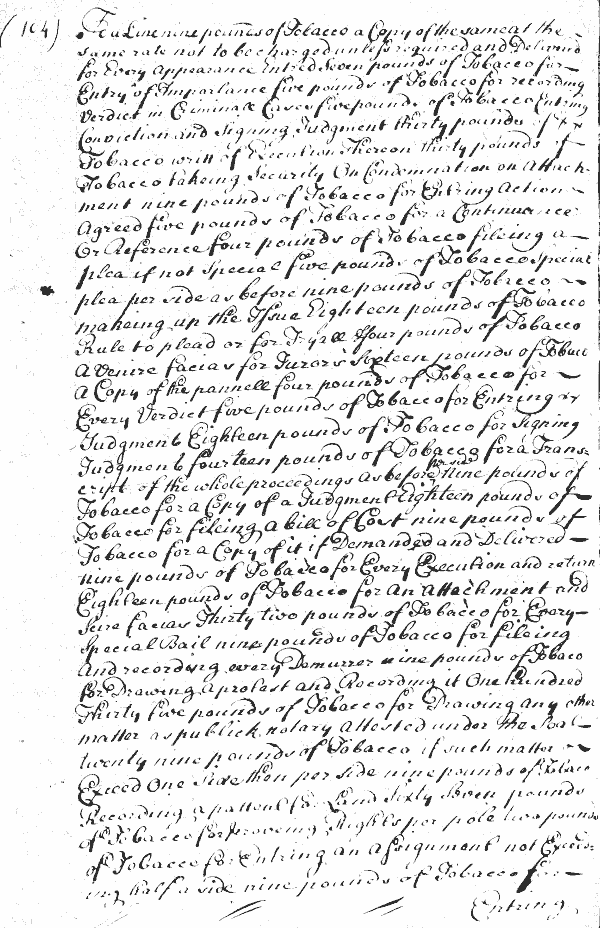 (104)
Line nine pounds of Tobacco a Copy of the same at the
same rate not to be charged unless required and Delivered
for Every Appearance Entred Seven pounds of Tobacco for
Entry of Imparlance five pounds of Tobacco for recording
Verdict in Criminall Cases five pounds of Tobacco Entring
Conviction and Signing Judgment thirty pounds of
Tobacco writt of Execution Thereon thirty pounds of
Tobacco takeing Security On Condemnation on Attach-
ment nine pounds of Tobacco for Entring Action
Agreed five pounds of Tobacco for a Continuance
Or Reference four pounds of Tobacco fileing a
plea if not Special five pounds of Tobacco Special
plea per side as before nine pounds of Tobacco
makeing up the Issue Eighteen pounds of Tobacco
Rule to plead or for Tryall four pounds of Tobacco
a Venire facias for Juror's Sixteen pounds of Tobacc
a Copy of the pannell four pounds of Tobacco for
Every Verdict five pounds of Tobacco for Entring
Judgments Eighteen pounds of Tobacco for Signing
Judgments fourteen pounds of Tobacco for a Trans-
cript of the whole proceedings as before per side Nine pounds of
Tobacco for a Copy of a Judgment Eighteen pounds of
Tobacco for fileing a bill of Cost nine pounds of
Tobacco for a Copy of it if Demanded and Delivered
nine pounds of Tobacco for Every Execution and return
Eighteen pounds of Tobacco for An Attachment and
Scire facias Thirty two pounds of Tobacco for Every
Special Bail nine pounds of Tobacco for fileing
And recording every Demurrer nine pounds of Tobaco
for Drawing a protest and Recording it One hundred
Thirty five pounds of Tobacco for Drawing any other
matter as publick notary Attested under the Seal
twenty nine pounds of Tobacco if such matter
Exceed One Side then per side nine pounds of Tobaco
Recording a pattent for Land Sixty Seven pounds
of Tobacco for proveing Rights per pole two pounds
of Tobacco for Entring an Assignment not Exceed-
ing half a side nine pounds of Tobacco for
Entring